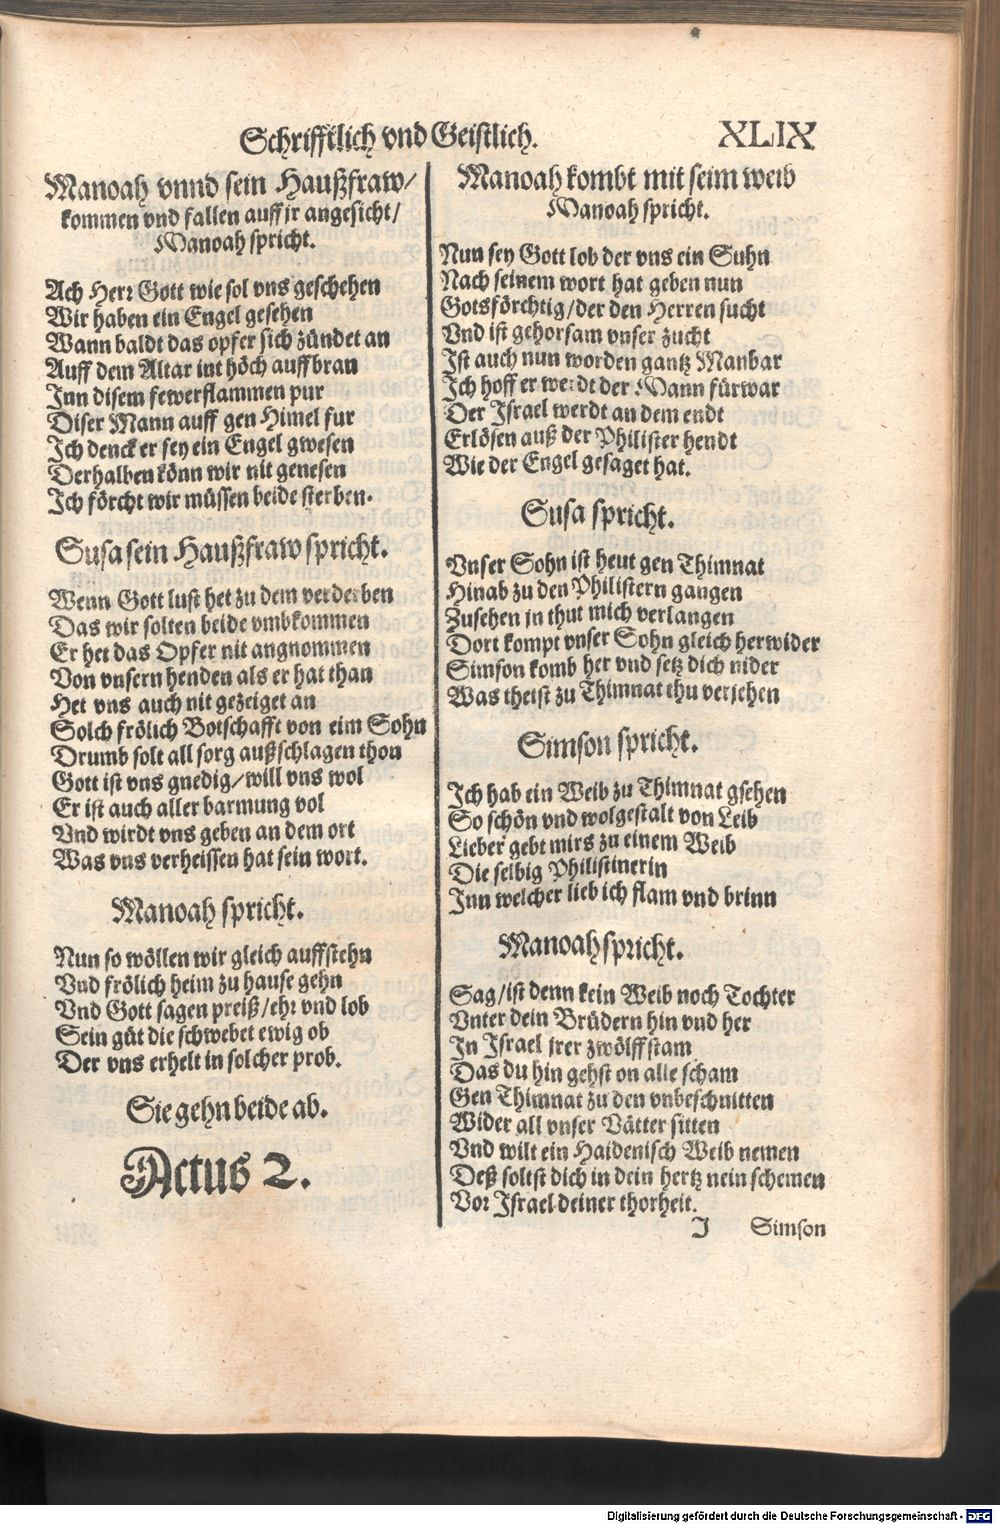 Schrifftlich vnd Geistlich.
XLIX
Manoah vnnd sein Haußfraw/
kommen vnd fallen auff jr angesicht/
Manoah spricht.
Ach Herr Gott wie sol vns geschehen
Wir haben ein Engel gesehen
Wann baldt das opfer sich zündet an
Auff dem Altar int höch auffbran
Inn disem fewerflammen pur
Diser Mann auff gen Himel fur
Ich denck er sey ein Engel gwesen
Derhalben könn wir nit genesen
Ich förcht wir müssen beide sterben.
Susa sein Haußfraw spricht.
Wenn Gott lust het zu dem verderben
Das wir solten beide vmbkommen
Er het das Opfer nit angnommen
Von vnsern henden als er hat than
Het vns auch nit gezeiget an
Solch frölich Botschafft von eim Sohn
Drumb solt all sorg außschlagen thon
Gott ist vns gnedig/will vns wol
Er ist auch aller barmung vol
Vnd wirdt vns geben an dem ort
Was vns verheissen hat sein wort.
Manoah spricht.
Nun so wöllen wir gleich auffstehn
Vnd frölich heim zu hause gehn
Vnd Gott sagen preiß/ehr vnd lob
Sein güt die schwebet ewig ob
Der vns erhelt in solcher prob.
Sie gehn beide ab.
Actus 2.
Manoah kombt mit seim weib
Manoah spricht.
Nun sey Gott lob der vns ein Suhn
Nach seinem wort hat geben nun
Gotsförchtig/der den Herren sucht
Vnd ist gehorsam vnser zucht
Ist auch nun worden gantz Manbar
Ich hoff er werdt der Mann fürwar
Der Israel werdt an dem endt
Erlösen auß der Philister hendt
Wie der Engel gesaget hat.
Susa spricht.
Vnser Sohn ist heut gen Thimnat
Hinab zu den Philistern gangen
Zusehen jn thut mich verlangen
Dort kompt vnser Sohn gleich herwider
Simson komb her vnd setz dich nider
Was theist zu Thimnat thu verjehen
Simson spricht.
Ich hab ein Weib zu Thimnat gsehen
So schön vnd wolgestalt von Leib
Lieber gebt mirs zu einem Weib
Die selbig Philistinerin
Inn welcher lieb ich flam vnd brinn
Manoah spricht.
Sag/ist denn kein Weib noch Tochter
Vnter dein Brüdern hin vnd her
In Israel jrer zwölffstam
Das du hin gehst on alle scham
Gen Thimnat zu den vnbeschnitten
Wider all vnser Vätter sitten
Vnd wilt ein Haidenisch Weib nemen
Deß soltst dich in dein hertz nein schemen
Vor Israel deiner thorheit.
J Simson
Digitalisierung gefördert durch die Deutsche Forschungsgemeinschaft - DFG